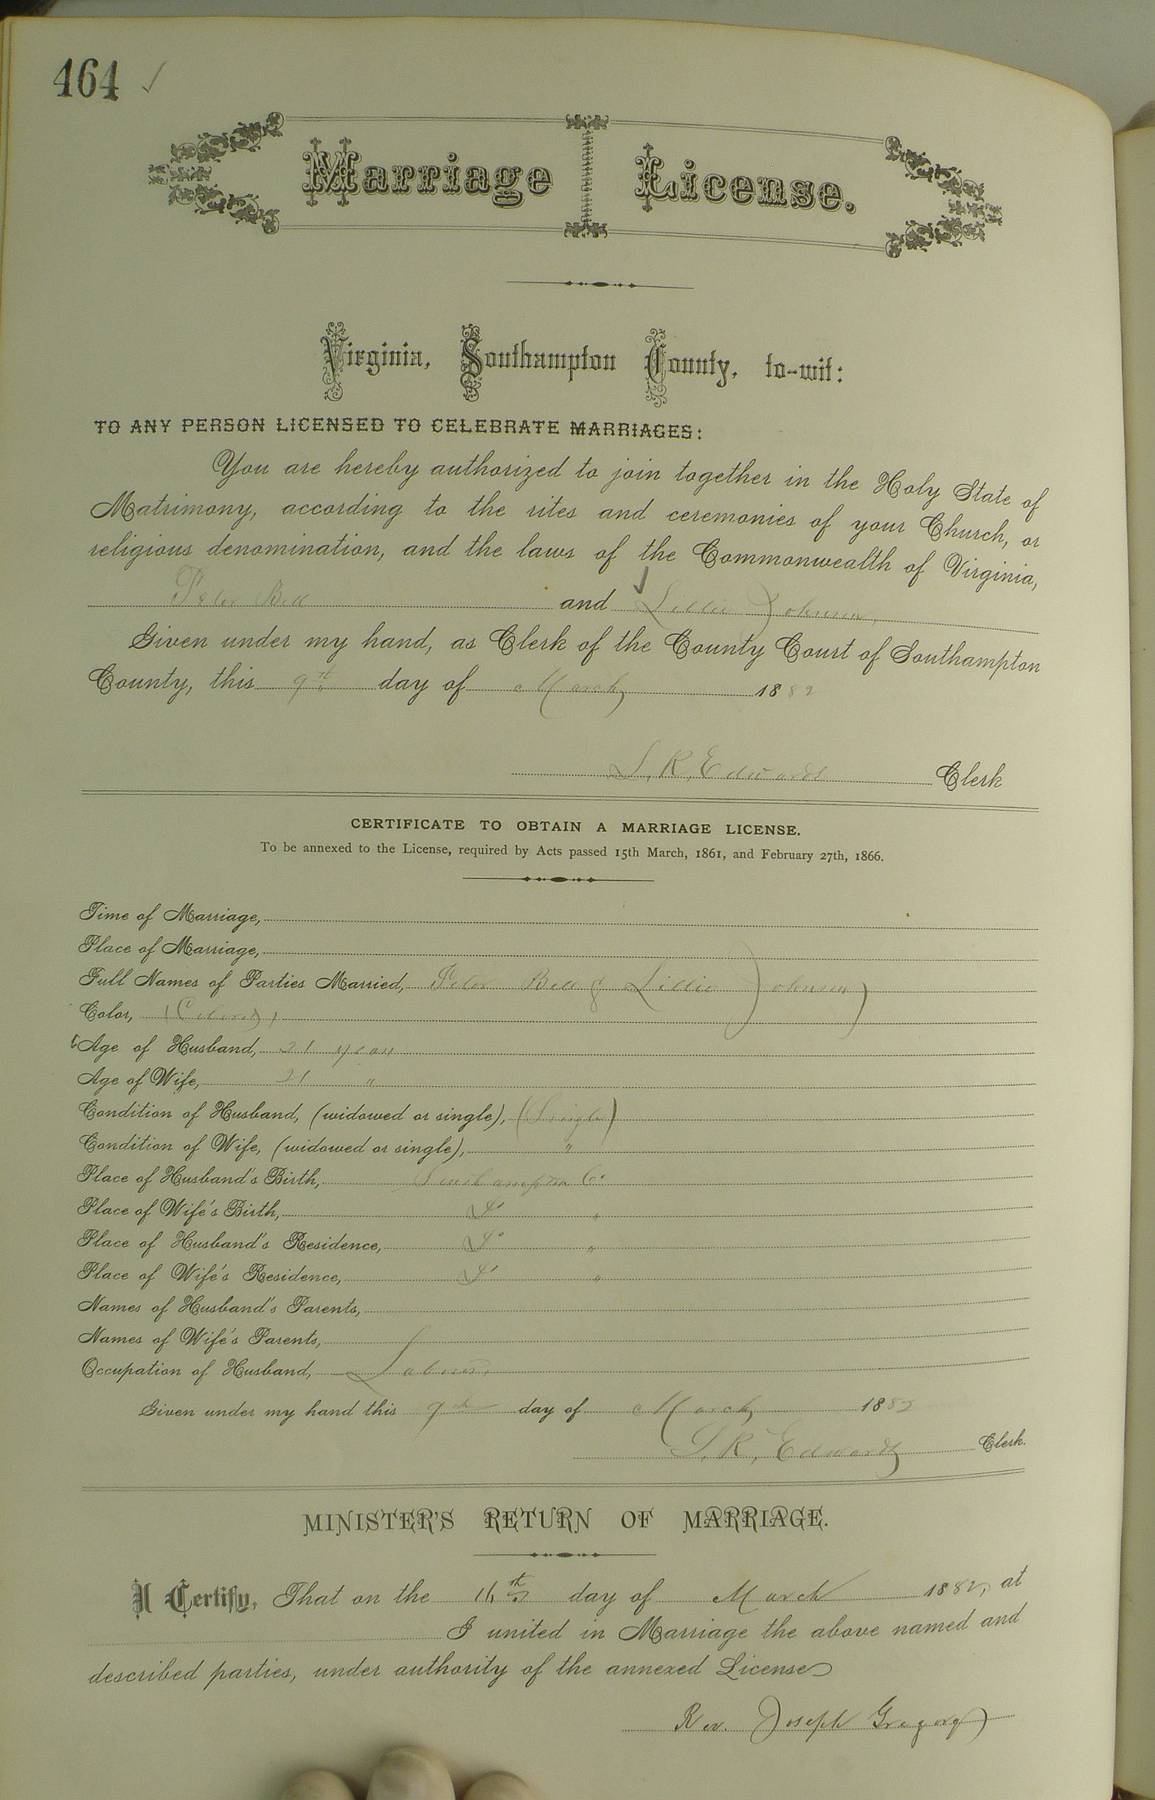 464 ✓
Marriage License.
Virginia, Southampton County, to-wit:
TO ANY PERSON LICENSED TO CELEBRATE MARRIAGES:
You are hereby authorized to join together in the Holy State of
Matrimony, according to the rites and ceremonies of your Church, or
religious denomination, and the laws of the Commonwealth of Virginia,
Peter Bell and Lillie Johnson,
Given under my hand, as Clerk of the County Court of Southampton
County, this 9th day of March 1882
L. R. Edwards Clerk
CERTIFICATE TO OBTAIN A MARRIAGE LICENSE.
To be annexed to the License, required by Acts passed 15th March, 1861, and February 27th, 1866.
Time of Marriage,
Place of Marriage,
Full Names of Parties Married, Peter Bell & Lillie Johnson
Color, (Colored)
Age of Husband, 21 years
Age of Wife, 21 "
Condition of Husband, (widowed or single), (Single)
Condition of Wife, (widowed or single), "
Place of Husband's Birth, Southampton Co
Place of Wife's Birth, Do "
Place of Husband's Residence, Do "
Place of Wife's Residence, Do "
Names of Husband's Parents,
Names of Wife's Parents,
Occupation of Husband, Laborer,
Given under my hand this 9th day of March 1882
L. R. Edwards Clerk.
MINISTER'S RETURN OF MARRIAGE.
I Certify, That on the 16th day of March 1882, at
I united in Marriage the above named and
described parties, under authority of the annexed License
Rev. Joseph Gregory